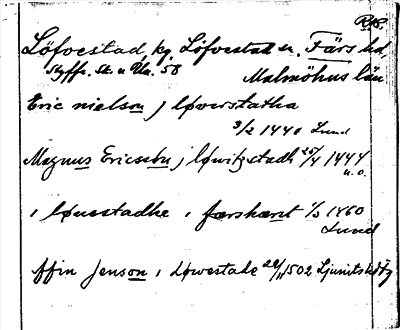 RAP.
Löfvestad, kg, Löfvestad sn, Färs hd,
Styffe, Sk. u Un. 58 Malmöhus län
Eric nielson j løverstatha
3/2 1440 Lund
Magnus Ericsson j løuitzstadh 25/4 1444
u.o.
i løuestadhe i færshæret 1/5 1460
Lund
ffin Jenson i Løwestade 28/11 1502 Ljunits hd